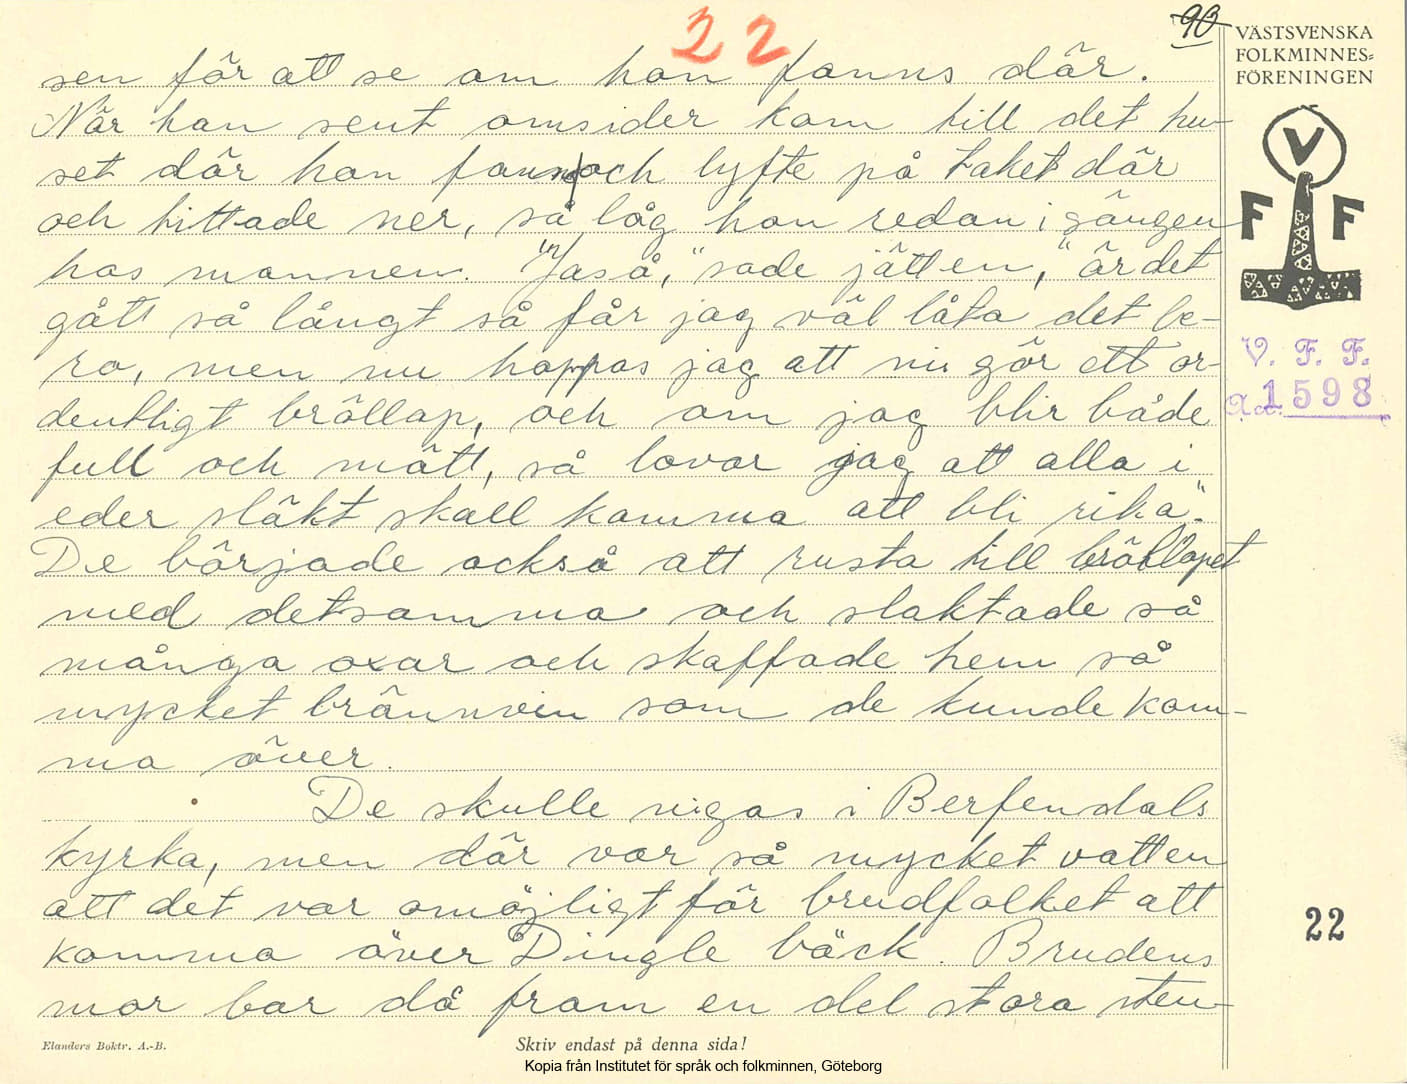 22
90
VÄSTSVENSKA
FOLKMINNES=
FÖRENINGEN
sen för att se om hon fanns där.
När han sent omsider kom till det hu-
set där hon fanns och lyfte på taket där
och tittade ner, så låg hon redan i sängen
hos mannen. "Jaså," sade jätten, "är det
gått så långt så får jag väl låta det be-
ro, men nu hoppas jag att ni gör ett or-
dentligt bröllop, och om jag blir både
full och mätt, så lovar jag att alla i
eder släkt skall komma att bli rika".
De började också att rusta till bröllopet
med detsamma och slaktade så
många oxar och skaffade hem så
mycket brännvin som de kunde kom-
ma över.
De skulle vigas i Berfendals
kyrka, men där var så mycket vatten
att det var omöjligt för brudfolket att
komma över Dingle bäck. Brudens
mor bar då fram en del stora sten-
V
F F
V. F. F.
Acc. 1598
22
Elanders Boktr. A.-B.
Skriv endast på denna sida!
Kopia från Institutet för språk och folkminnen, Göteborg